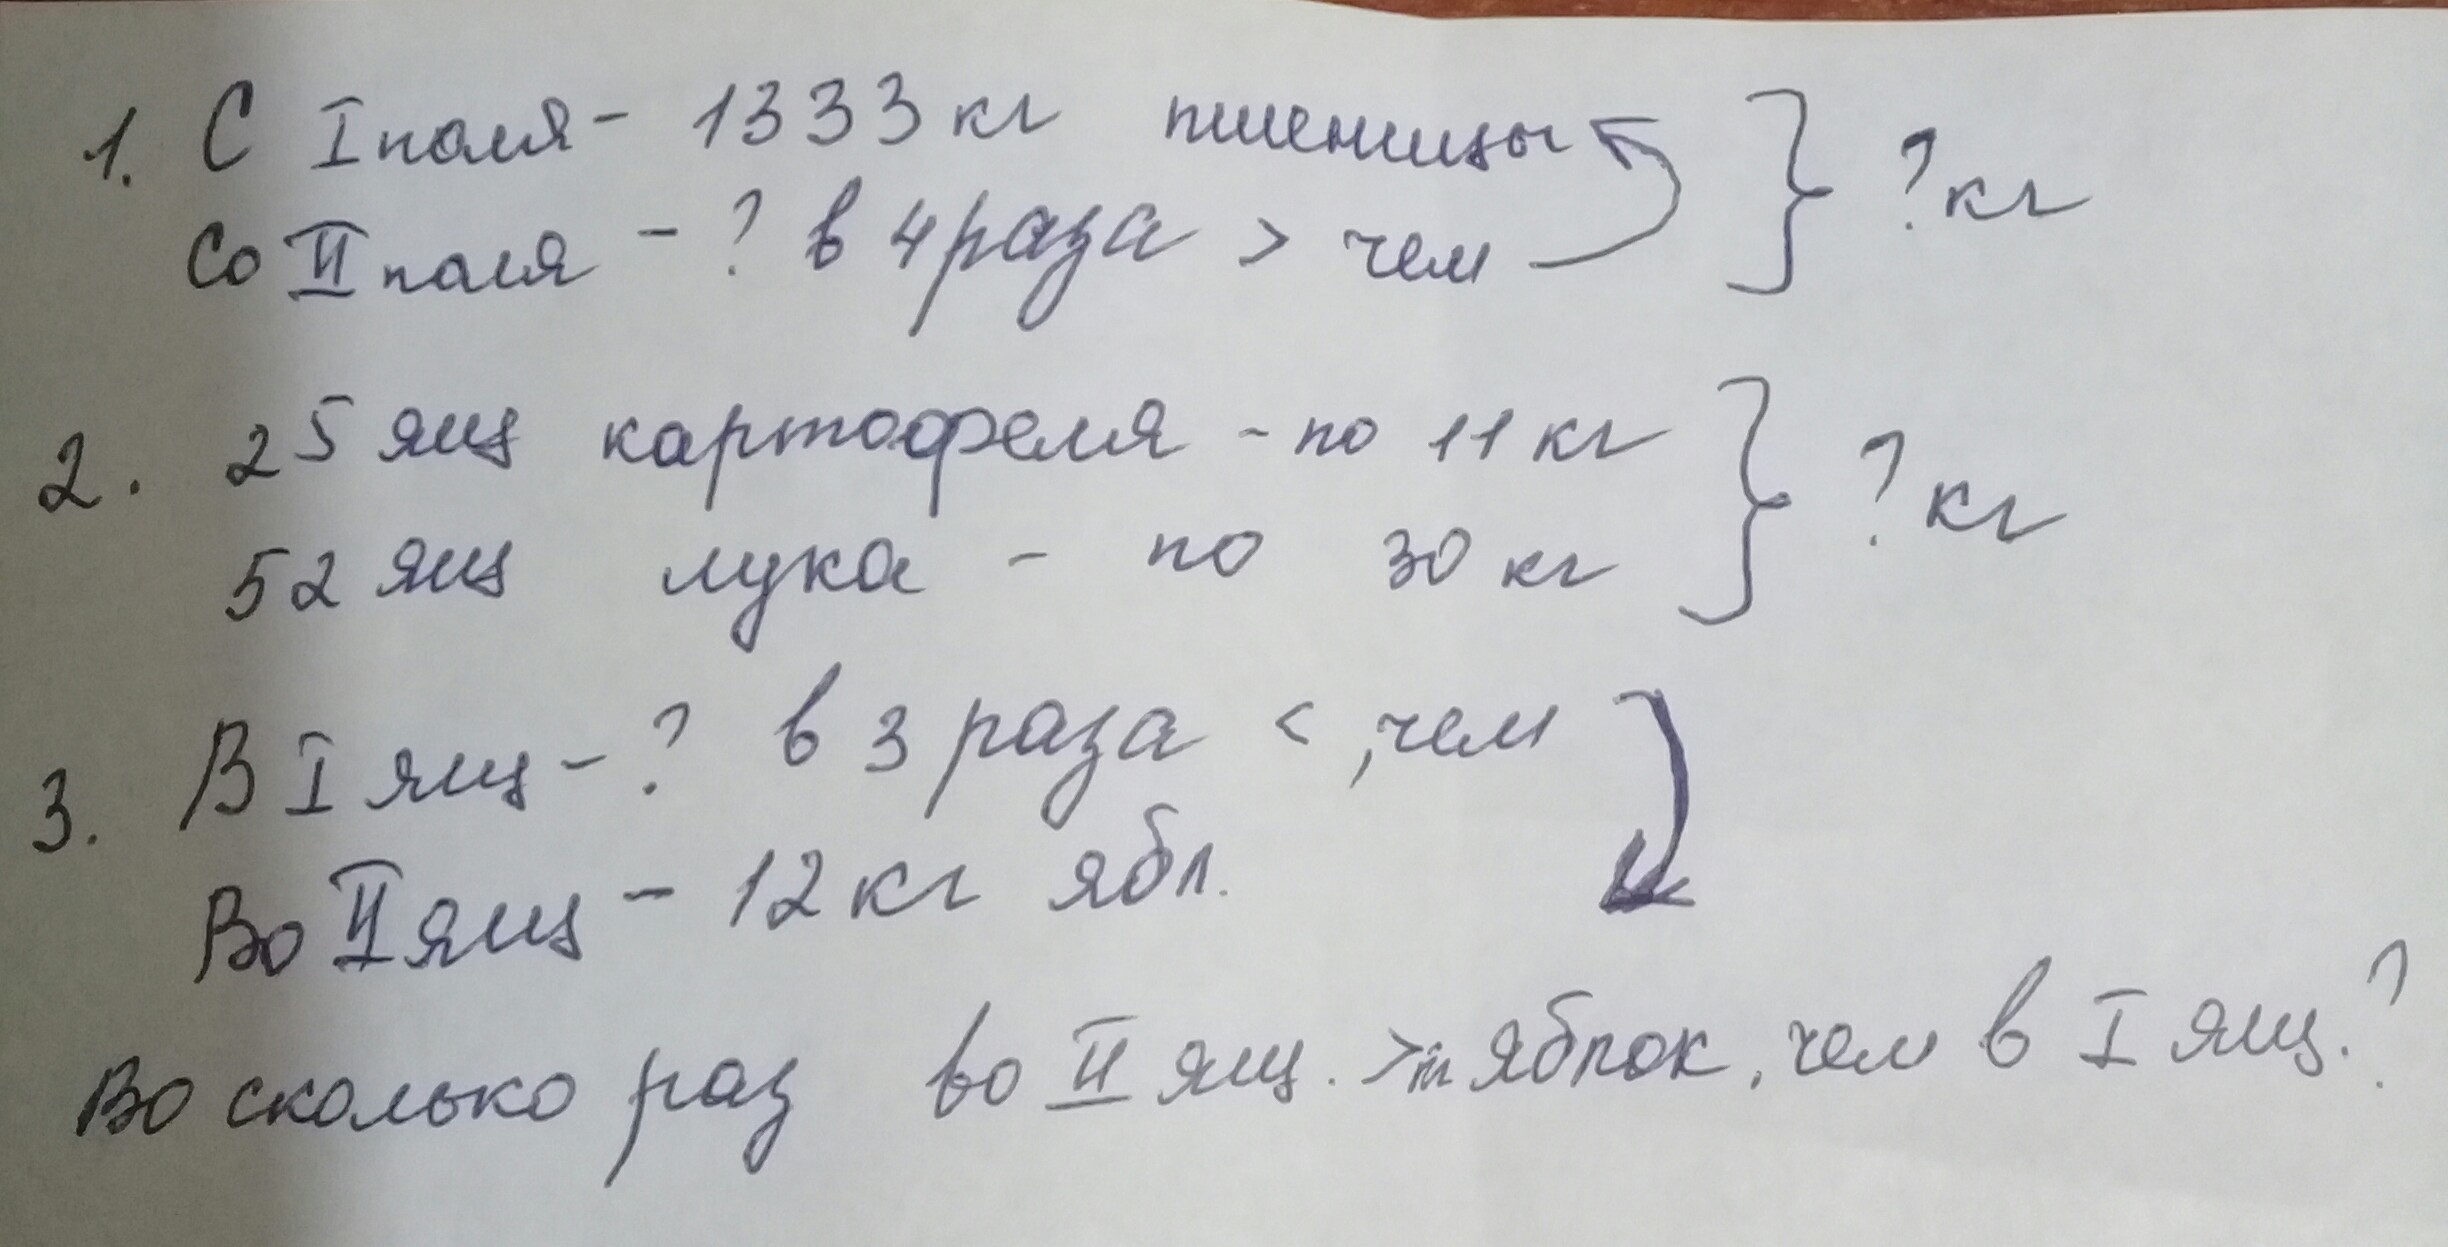 1. С I поля - 1333 кг пшеницы } ? кг
Со II поля - ? в 4 раза > чем
2. 25 ящ картофеля - по 11 кг } ? кг
52 ящ лука - по 30 кг
3. В I ящ - ? в 3 раза <, чем
Во II ящ - 12 кг ябл.
Во сколько раз во II ящ. > яблок, чем в I ящ.?